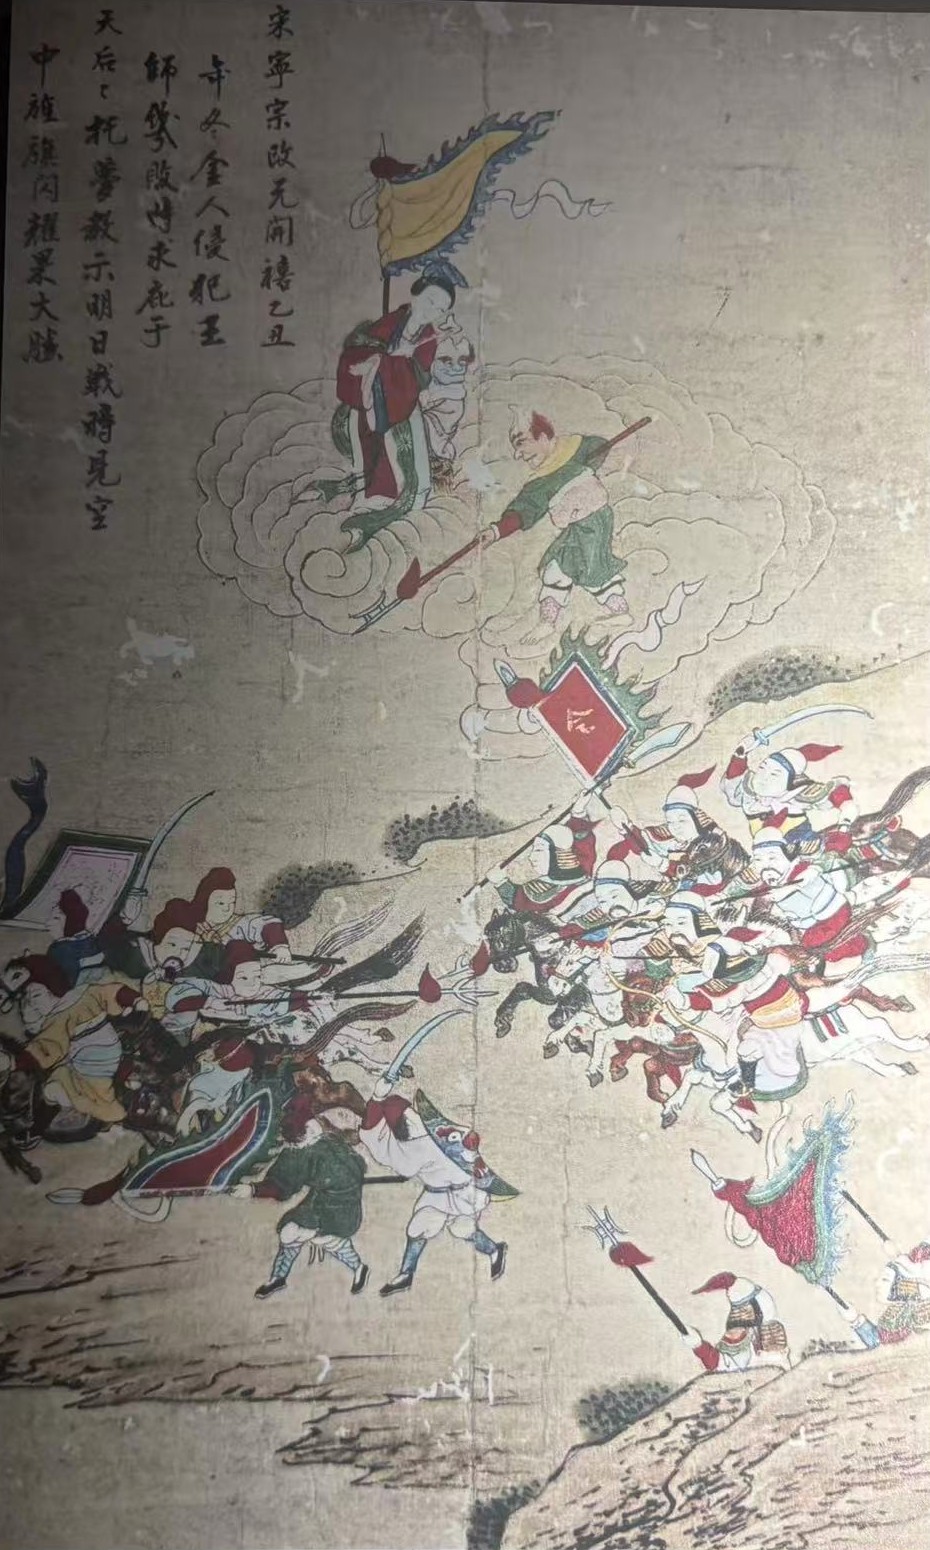 宋寧宗改元開禧乙丑
年冬金人侵犯王
師幾敗時求庇于
天后〻托夢教示明日戰時見空
中旌旗閃耀果大勝